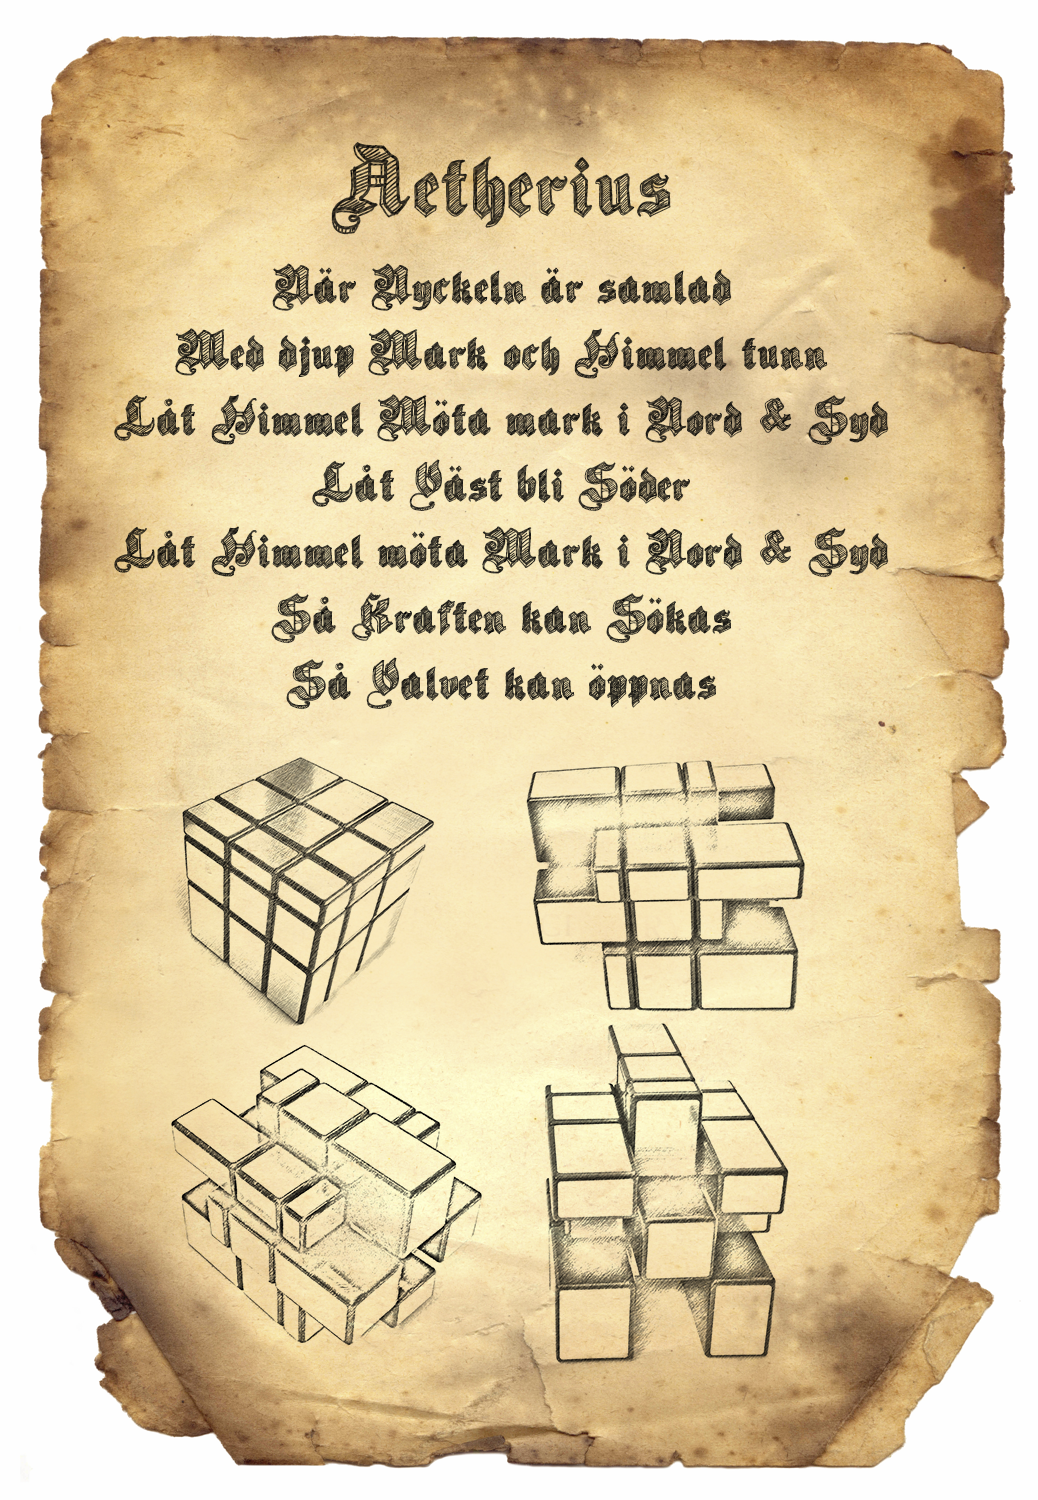 Aetherius
När Nyckeln är samlad
Med djup Mark och Himmel tunn
Låt Himmel Möta mark i Nord & Syd
Låt Väst bli Söder
Låt Himmel möta Mark i Nord & Syd
Så Kraften kan Sökas
Så Valvet kan öppnas